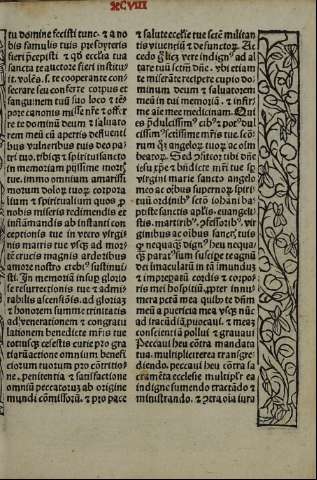 XCVIII
tu domine fecisti tunc ⁊ a no
bis famulis tuis presbyteris
fieri p̃cepisti ⁊ qd̓ ecclesia tua
sancta te auctore fieri instituit
it. volẽs. s. te cooperante con
secrare seu conferre corpus et
sanguinem tuũ suo loco ⁊ tẽ
pore canonis misse n̄r̄e ⁊ offer
re te dominũ deum ⁊ saluato
rem meũ cũ apertis defluenti
bus vulneribus tuis deo pa
tri tuo. tibiq; ⁊ spiritui sancto
in memoriam piissime mortis
tue. immo omnium amarissi
morum dolorũ tuorũ corpora
lium ⁊ spiritualium quos p̱
nobis miseris redimendis et
inflãmandis ab instanti con
ceptionis tue in vtero virgi
nis matris tue vsq; ad mor
tẽ crucis magnis ardoribus
amore nostro crebr̓ sustinui
sti. In memoriã insup̱ glorio
se resurrectionis tue ⁊ admi
rabilis ascensiõis. ad gloriaȝ
⁊ honorem summe trinitatis
ad venerationem ⁊ congratu
lationem benedicte mr̃is tue
totiusq; celestis curie pro gra
tiarũ actione omnium benefi
ciorum tuorum pro cõtritio
ne. penitentia ⁊ satisfactione
omniũ peccatorũ ab origine
mundi cõmissorũ. ⁊ pro pace
⁊ salute ecclesie tue sctẽ militan
tis viuentiũ ⁊ defunctorũ. Ac
cedo q̃uis vere indign⁹ ad al
tare tuũ sctm̃ dñe. vbi etiam
te miserãte recipere cupio do
minum deum ⁊ saluatorem
meuȝ in tui memoriã. ⁊ infir
me aĩe mee medicinam. Qui
es p̃dulcissim⁹ cib⁹ ⁊ pot⁹ dul
cissim⁹ sctissime mr̃is tue sctõ
rum q̃; angelorũ tuorũ ac om
beatorũ. Sed p̃sitor tibi dñe
iesu xp̃e ⁊ bñdicte mr̃i tue sp̱
virgini marie sancto angelo
meo ac oĩbus supernorũ spiri
tuũ ordinib⁹ sctõ iohani ba
ptiste sanctis apl̃is. euangeli
stis. martirib⁹. ꝯfessorib⁹. vir
ginibus ac oĩbus sanct̓ tuis
q̓ nequaq̃ dign⁹ heu nequa
q̃ parat⁹ sum suscipe te agnũ
dei immaculatũ in tã immunduȝ
⁊ imprepartũ cordis ⁊ corpo
ris mei hospitiũ. p̱pter innu
mera pctã mea quib⁹ te dñm
meũ a puericia mea vsq; nũc
ad iracũdiã p̱uocaui. ⁊ meaȝ
conscientiã pollui ⁊ grauaui
Peccaui heu cõtra mandata
tua. multipliciter ea transgre
diendo. peccaui heu cõtra sa
cramẽta ecclesie multipl̃r ea
indigne sumendo tractãdo ⁊
ministrando. ⁊ ꝯtra oĩa iura